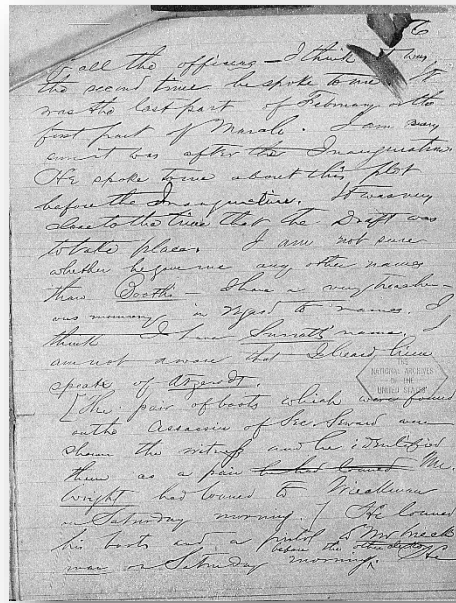 6
of all the officers — I think it was
the second time he spoke to me. It
was the last part of February or the
first part of March. I am very
sure it was after the Inauguration
He spoke to me about this plot
before the Inauguration. It was very
close to the time that the Draft was
to take place. I am not sure
whether he gave me any other names
than Booth's — I have a very treacher-
ous memory in regard to names. I
think I have Surratt's name. I
am not aware that I heard him
speak of Atzerodt.
[The pair of boots which were found
on the assassin of Sec. Seward were
shown the witness and he identified
them as a pair he had loaned Mr.
Wright had loaned to Weichman
on Saturday morning.] He loaned
his boots and a pistol to
before the other
war on Saturday morning. He
NATIONAL ARCHIVES
OF THE
UNITED STATES